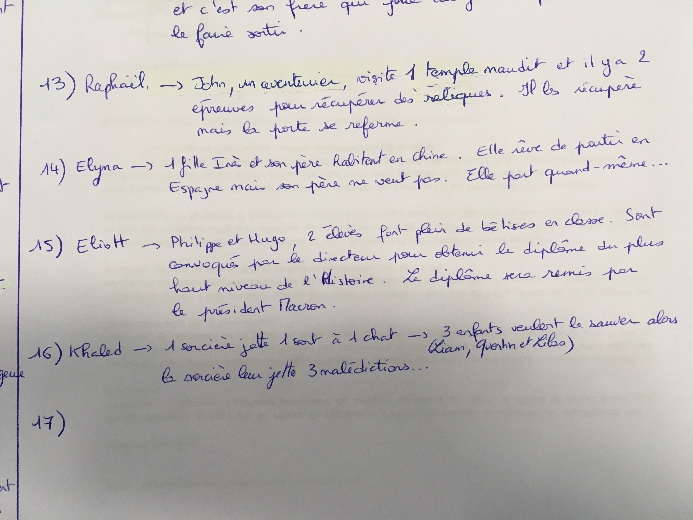 et c'est son frère qui
le faire sortir.
13) Raphaël. → John, un aventurier, visite 1 temple maudit et il y a 2
épreuves pour récupérer des reliques. Il les récupère
mais la porte se referme.
14) Elyna → 1 fille Inè et son père habitent en Chine. Elle rêve de partir en
Espagne mais son père ne veut pas. Elle part quand-même...
15) Eliott → Philippe et Hugo, 2 élèves font plein de bêtises en classe. Sont
convoqués par le directeur pour obtenir le diplôme du plus
haut niveau de l'Histoire. Le diplôme sera remis par
le président Macron.
16) Khaled → 1 sorcière jette 1 sort à 1 chat → 3 enfants veulent le sauver alors
(Liam, Quentin et Lilas)
la sorcière leur jette 3 malédictions...
17)